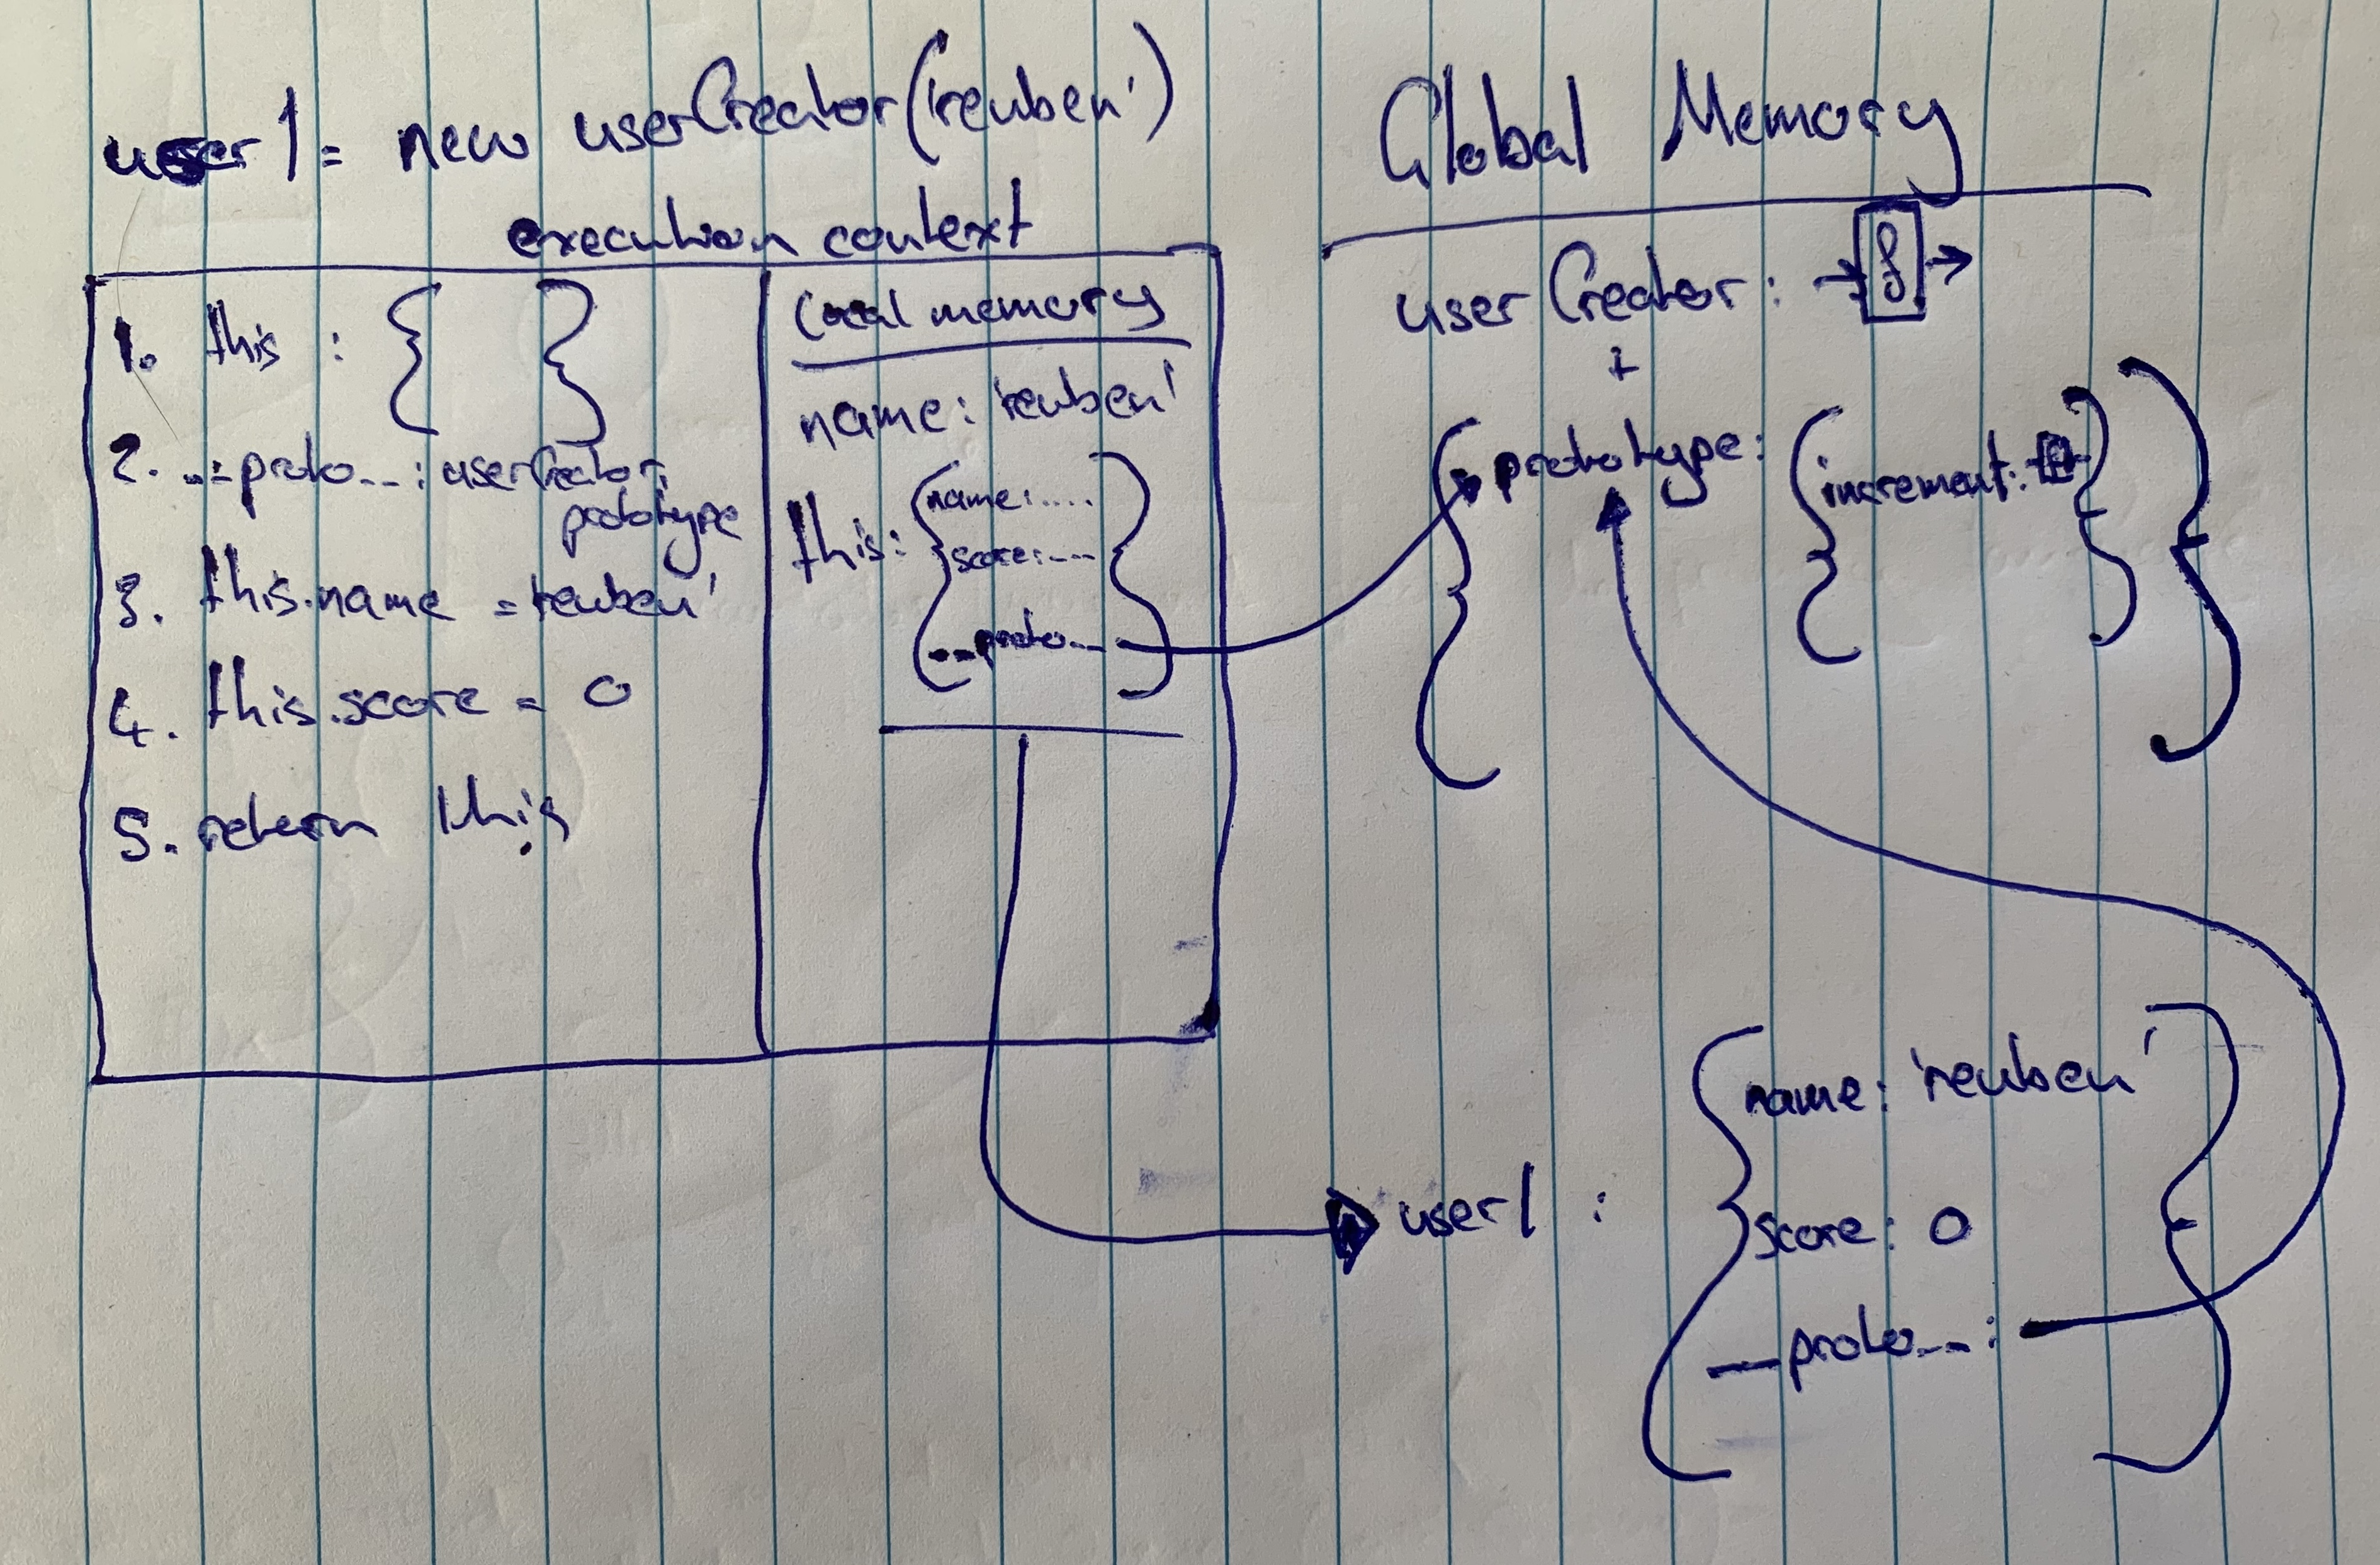 user1 = new userCreator('reuben')
execution context
1. this : { }
2. __proto__ : userCreator.
prototype
3. this.name = 'reuben'
4. this.score = 0
5. return this
Local memory
name: 'reuben'
this: { name: ....
score: ---
__proto__ }
Global Memory
userCreator : → f →
+
{ prototype: { increment: } }
user1 : { name: 'reuben'
score: 0
__proto__ : }